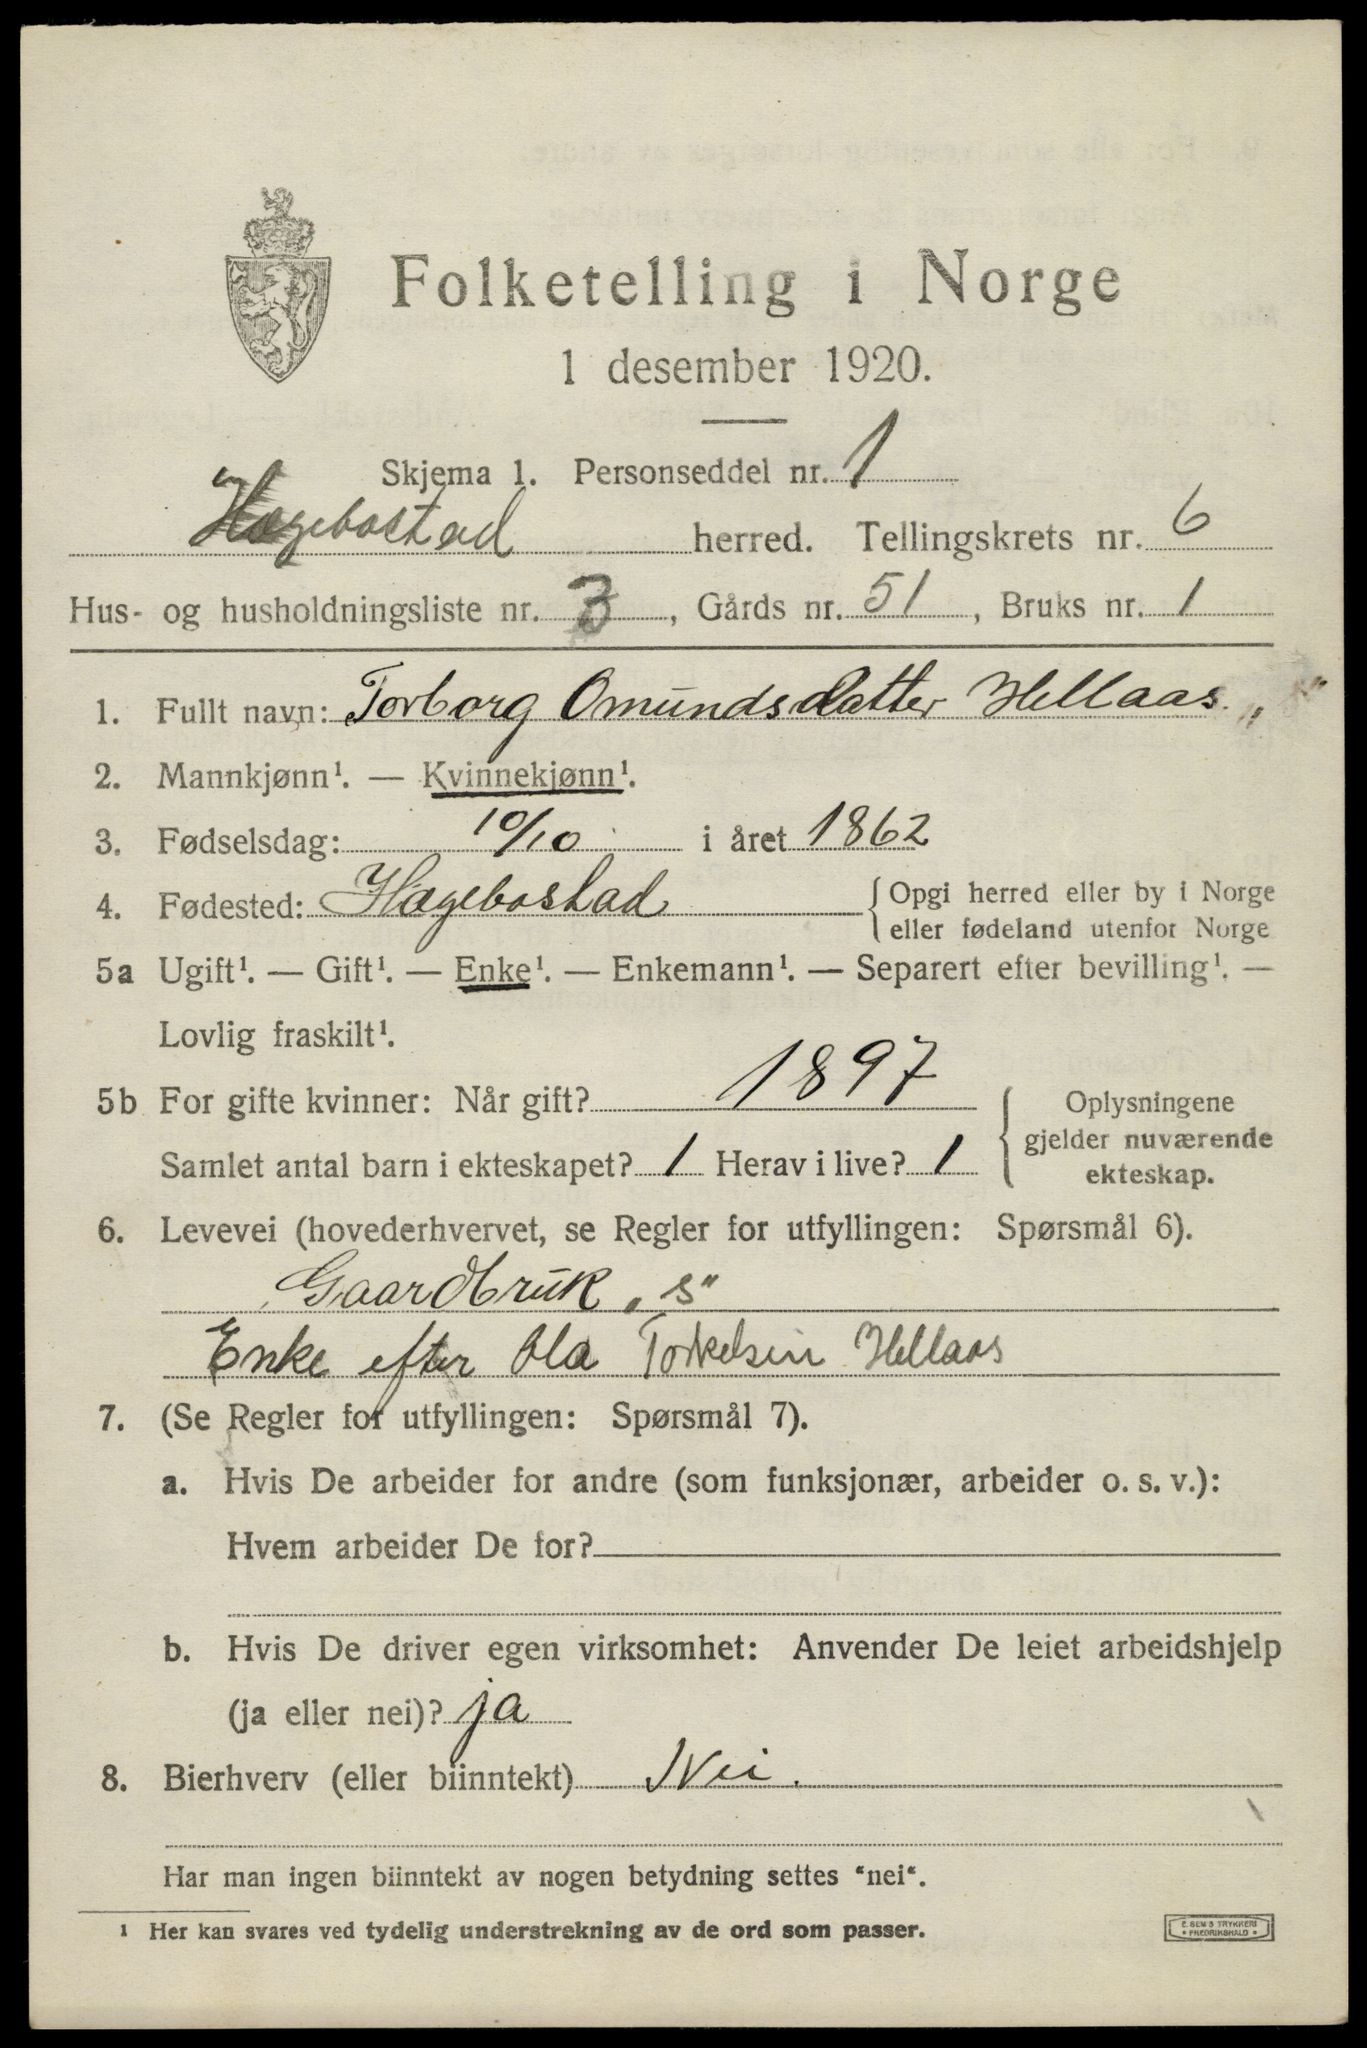 Folketelling i Norge
1 desember 1920.
Skjema 1. Personseddel nr. 1
Hægebostad herred. Tellingskrets nr. 6
Hus- og husholdningsliste nr. 3, Gårds nr. 51, Bruks nr. 1
1. Fullt navn: Torborg Omundsdatter Hellaas.
2. Mannkjønn¹. — Kvinnekjønn¹.
3. Fødselsdag: 10/10 i året 1862
4. Fødested: Hægebostad { Opgi herred eller by i Norge
eller fødeland utenfor Norge
5a Ugift¹. — Gift¹. — Enke¹. — Enkemann¹. — Separert efter bevilling¹. —
Lovlig fraskilt¹.
5b For gifte kvinner: Når gift? 1897
Samlet antal barn i ekteskapet? 1 Herav i live? 1
{ Oplysningene
gjelder nuværende
ekteskap.
6. Levevei (hovederhvervet, se Regler for utfyllingen: Spørsmål 6).
Gaardbruk „s"
Enke efter Ola Torkelsen Hellaas
7. (Se Regler for utfyllingen: Spørsmål 7).
a. Hvis De arbeider for andre (som funksjonær, arbeider o. s. v.):
Hvem arbeider De for?
b. Hvis De driver egen virksomhet: Anvender De leiet arbeidshjelp
(ja eller nei)? ja
8. Bierhverv (eller biinntekt) Nei.
Har man ingen biinntekt av nogen betydning settes "nei".
¹ Her kan svares ved tydelig understrekning av de ord som passer.
E. SEM'S TRYKKERI
• FREDRIKSHALD •